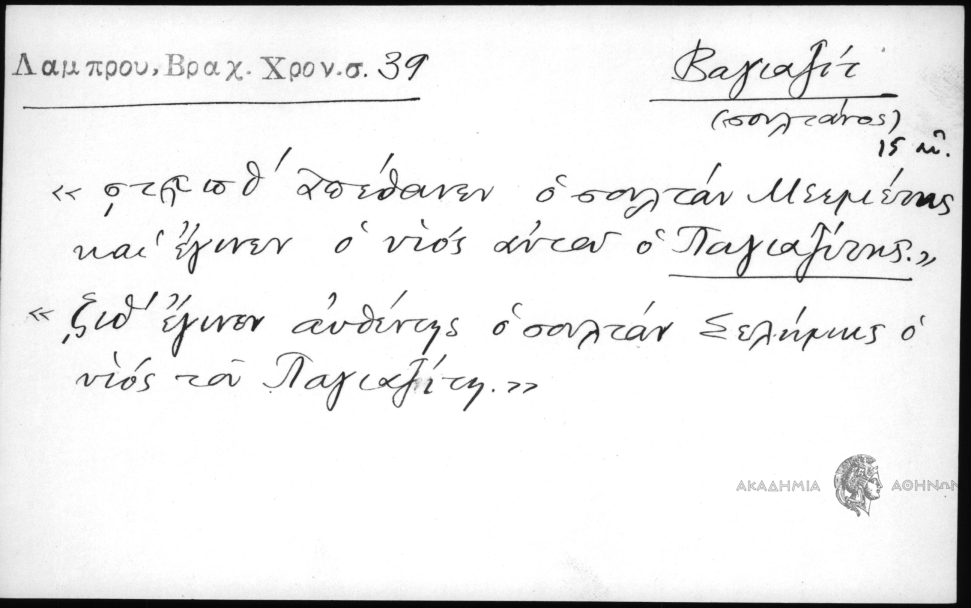 Λαμπρου, Βραχ. Χρον. σ. 39
Βαγιαζίτ
(σουλτάνος)
15 αἰ.
« ἀπέθανεν ὁ σουλτάν Μεεμέτης
καί ἔγινεν ὁ υἱός αὐτοῦ ὁ Παγιαζίτης.»
« ἔγινεν αὐθέντης ὁ σουλτάν Σελήμης ὁ
υἱός τοῦ Παγιαζίτη.»
ΑΚΑΔΗΜΙΑ ΑΘΗΝΩΝ